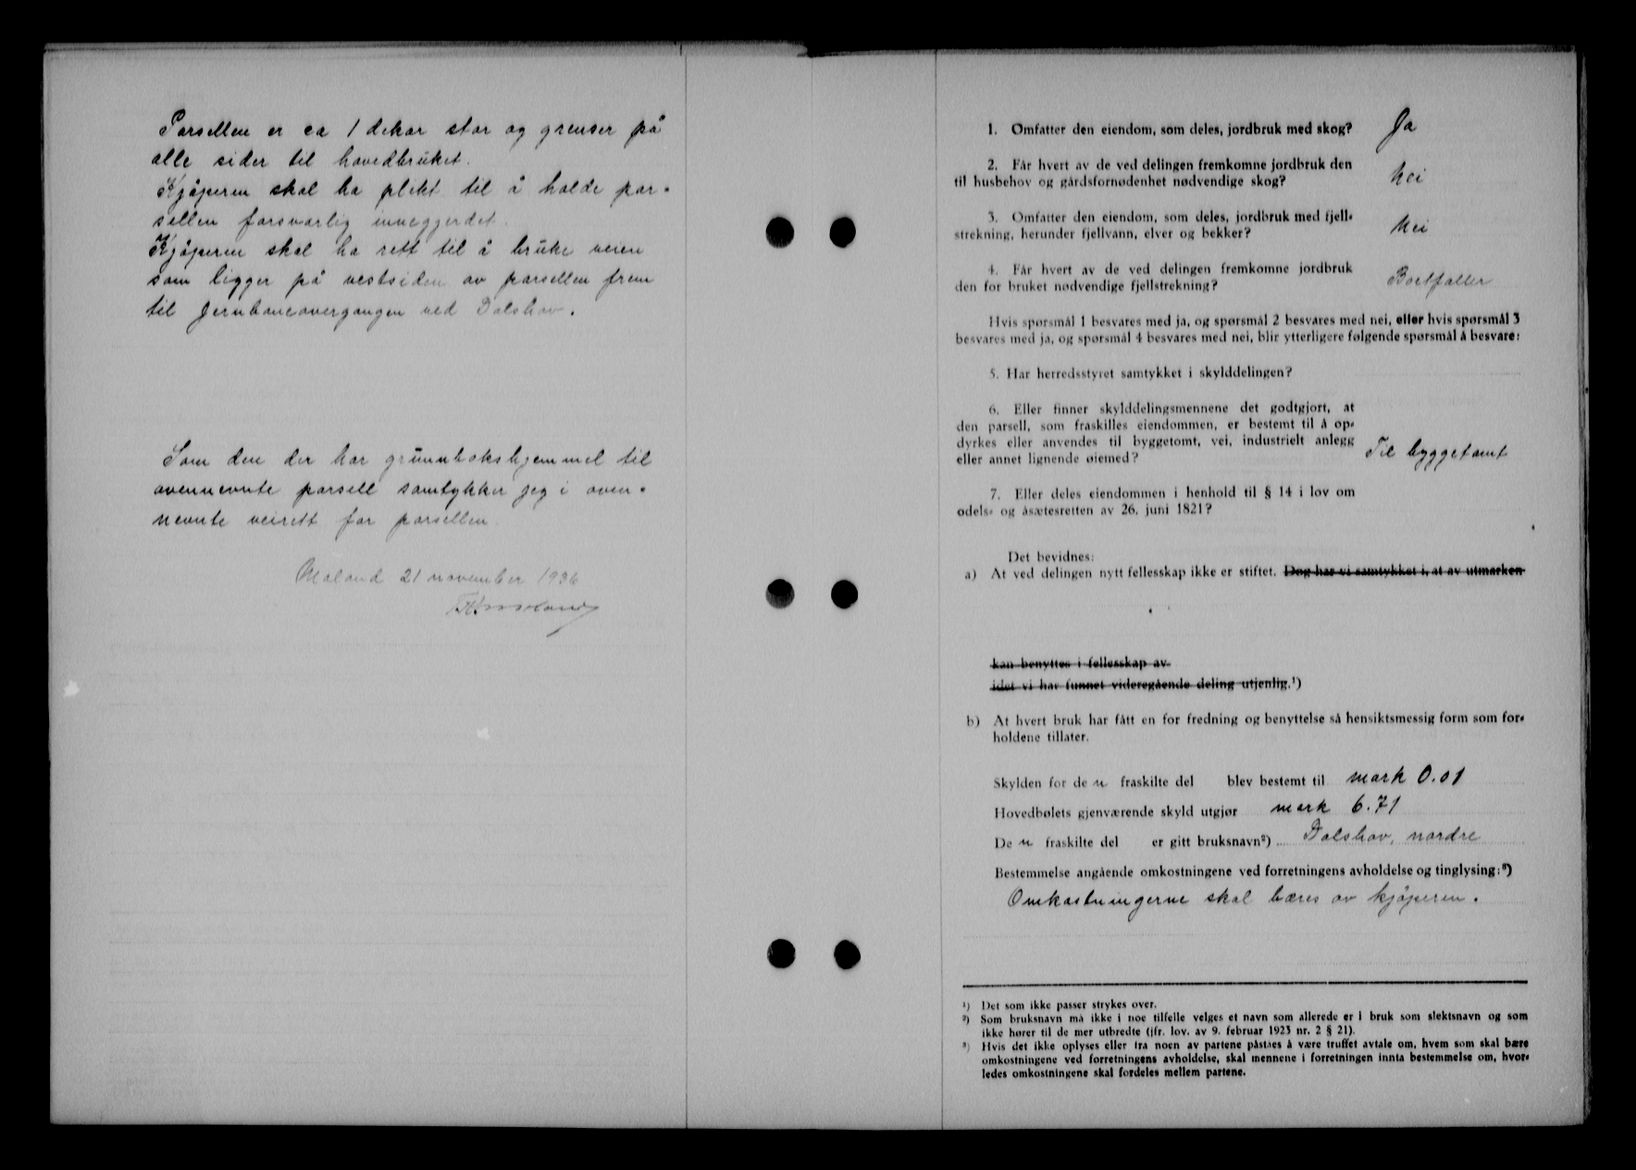 Parsellen er ca 1 dekar stor og grenser på
alle sider til hovedbruket.
Kjøperen skal ha plikt til å holde par-
sellen forsvarlig inneggerdet.
Kjøperen skal ha rett til å bruke veien
som ligger på vestsiden av parsellen frem
til Jernbaneovergangen ved Dalshov.
Som den der har grunnbokshjemmel til
ovennevnte parsell samtykker jeg i oven-
nevnte veirett for parsellen
21 november 1936
1. Omfatter den eiendom, som deles, jordbruk med skog? Ja
2. Får hvert av de ved delingen fremkomne jordbruk den
til husbehov og gårdsfornødenhet nødvendige skog? Nei
3. Omfatter den eiendom, som deles, jordbruk med fjell-
strekning, herunder fjellvann, elver og bekker? Nei
4. Får hvert av de ved delingen fremkomne jordbruk
den for bruket nødvendige fjellstrekning? Bortfaller
Hvis spørsmål 1 besvares med ja, og spørsmål 2 besvares med nei, eller hvis spørsmål 3
besvares med ja, og spørsmål 4 besvares med nei, blir ytterligere følgende spørsmål å besvare:
5. Har herredsstyret samtykket i skylddelingen?
6. Eller finner skylddelingsmennene det godtgjort, at
den parsell, som fraskilles eiendommen, er bestemt til å op-
dyrkes eller anvendes til byggetomt, vei, industrielt anlegg
eller annet lignende øiemed? Til byggetomt
7. Eller deles eiendommen i henhold til § 14 i lov om
odels- og åsætesretten av 26. juni 1821?
Det bevidnes:
a) At ved delingen nytt fellesskap ikke er stiftet. Dog har vi samtykket i, at av utmarken
kan benyttes i fellesskap av
idet vi har funnet videregående deling utjenlig.¹)
b) At hvert bruk har fått en for fredning og benyttelse så hensiktsmessig form som for-
holdene tillater.
Skylden for de n fraskilte del blev bestemt til mark 0.01
Hovedbølets gjenværende skyld utgjør mark 6.71
De n fraskilte del er gitt bruksnavn²) Dalshov, nordre
Bestemmelse angående omkostningene ved forretningens avholdelse og tinglysing:³)
Omkostningerne skal bæres av kjøperen.
¹) Det som ikke passer strykes over.
²) Som bruksnavn må ikke i noe tilfelle velges et navn som allerede er i bruk som slektsnavn og som
ikke hører til de mer utbredte (jfr. lov. av 9. februar 1923 nr. 2 § 21).
³) Hvis det ikke oplyses eller fra noen av partene påståes å være truffet avtale om, hvem som skal bære
omkostningene ved forretningens avholdelse, skal mennene i forretningen innta bestemmelse om, hvor-
ledes omkostningene skal fordeles mellem partene.